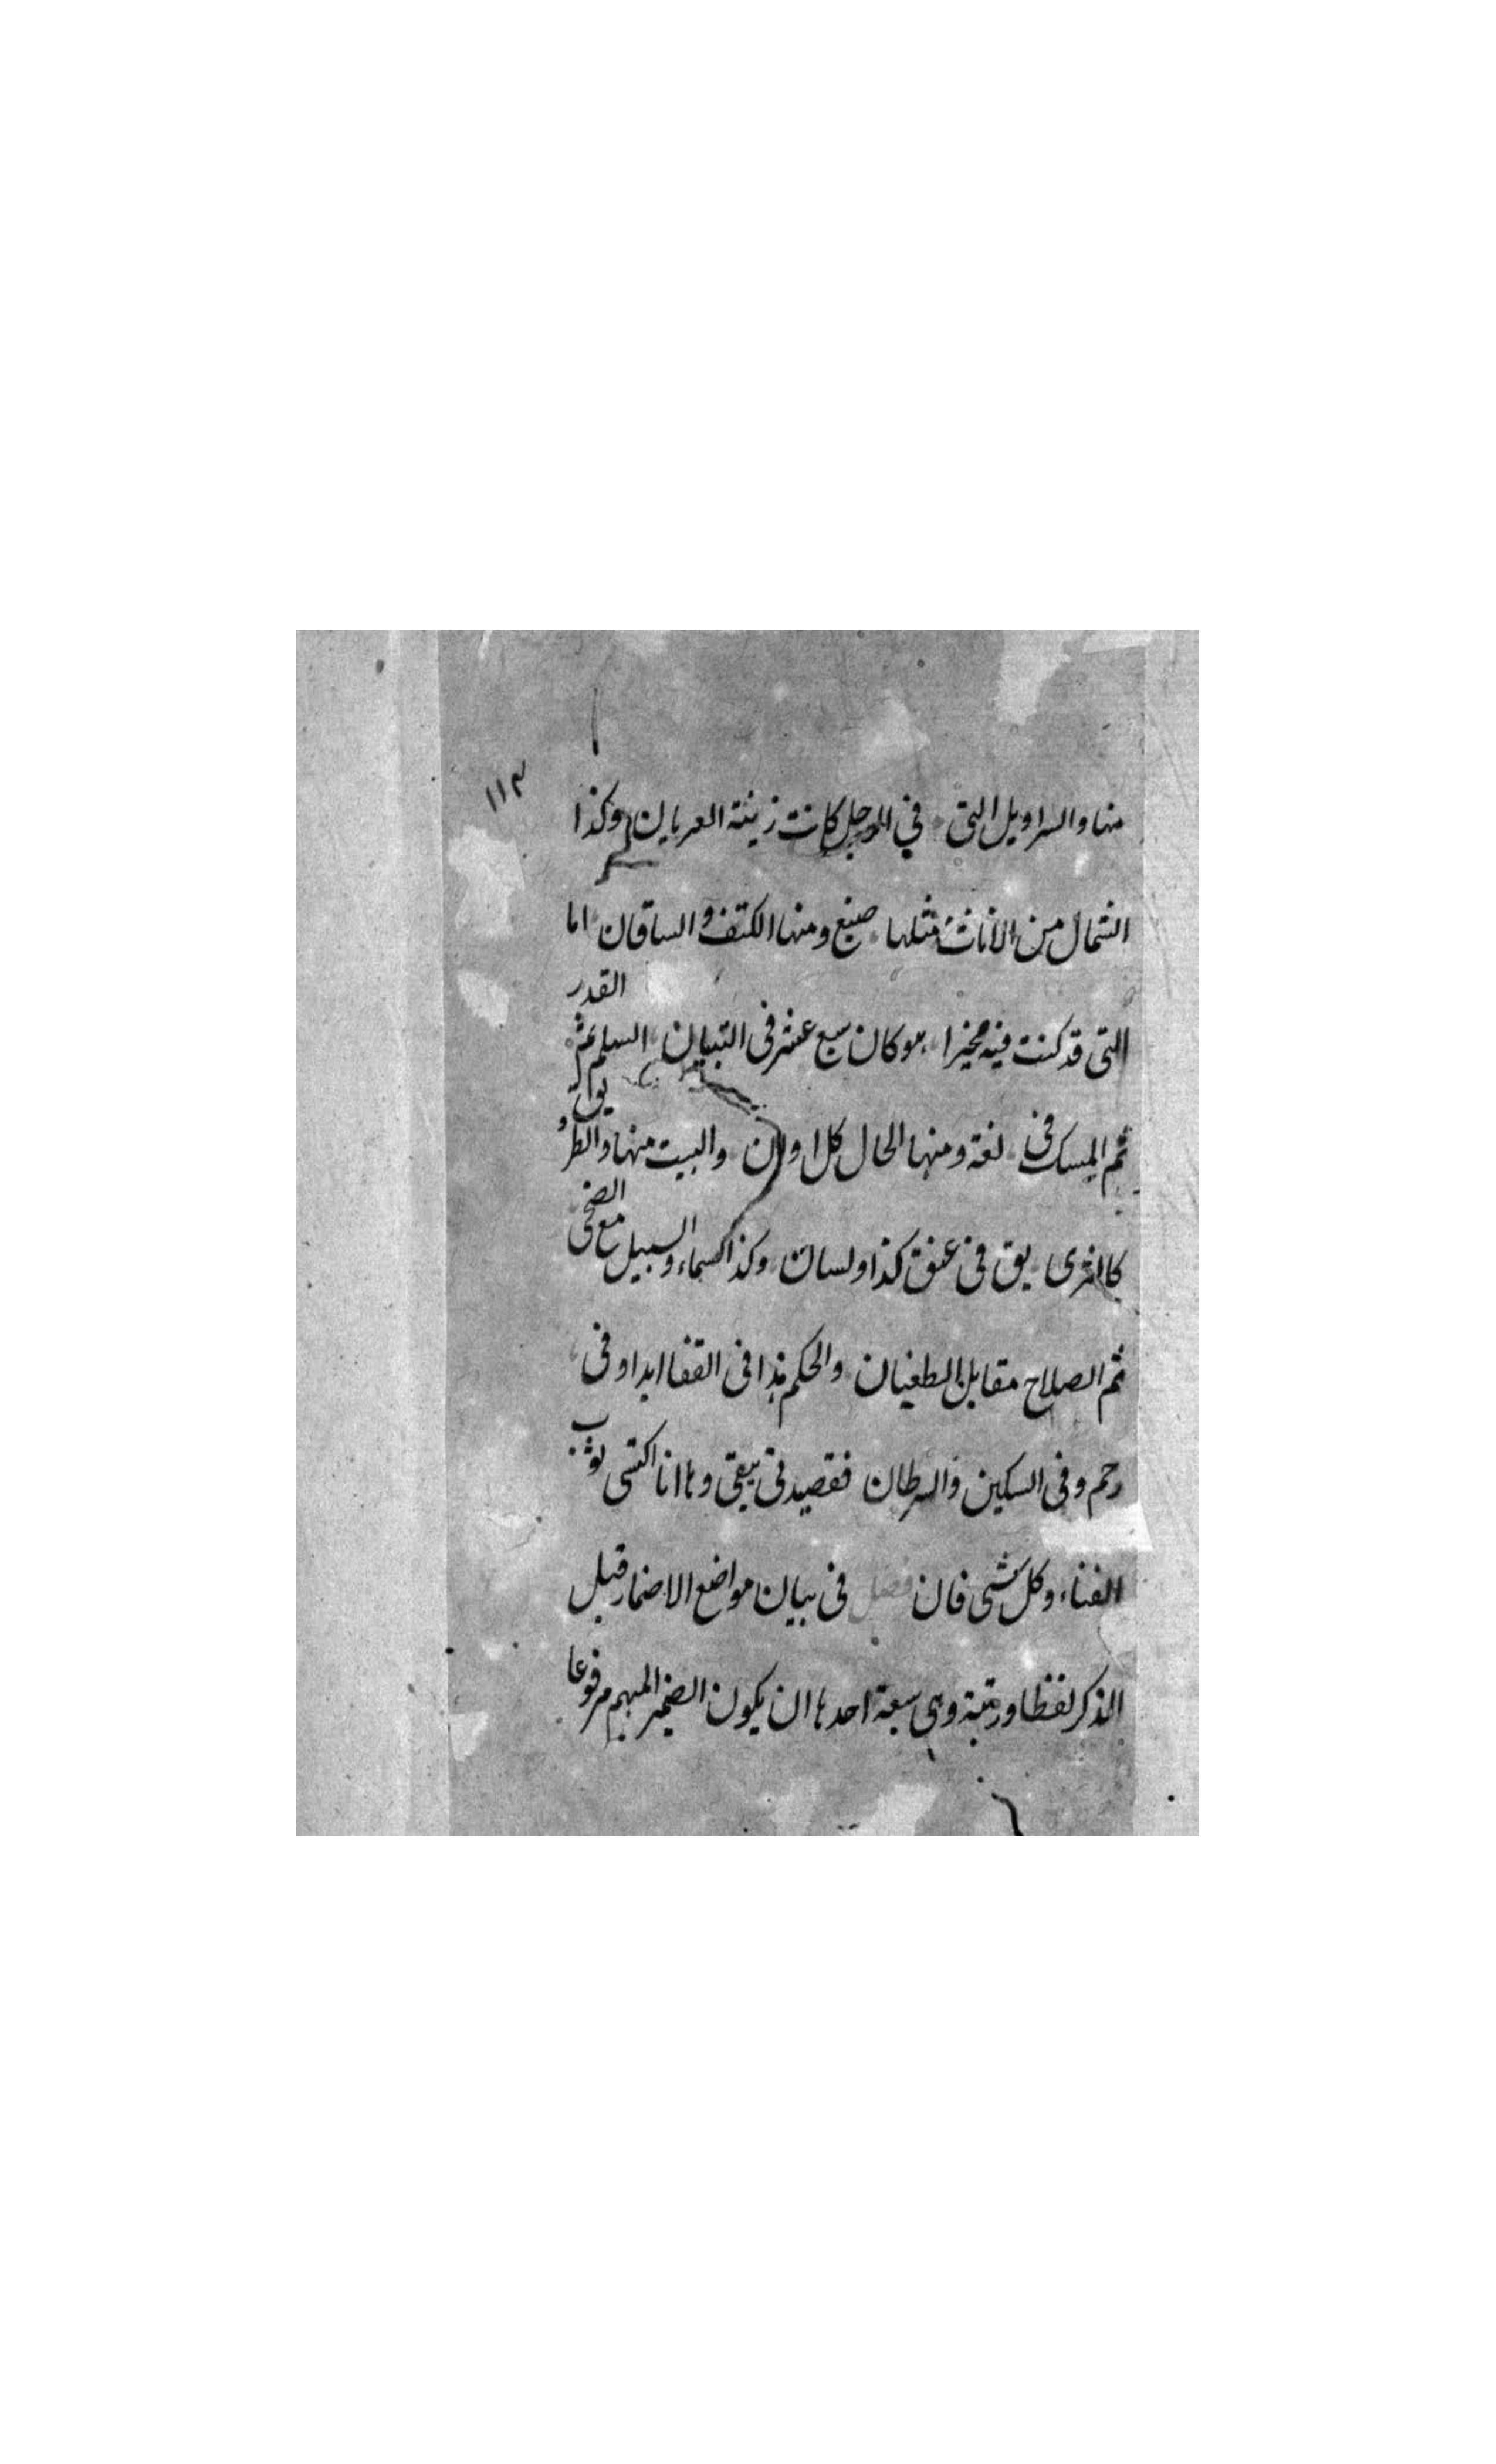 ١١٣
منها والسراويل التى في الرجل كانت زينة العريان وكذا
الشمال من الاناث مثلها ضبع ومنها الكتف والساقان اما
التى قد كنت فيه مخيرا هو كان سبع عشر فى التبيان السلم ثم القدر
ثم المسك فى لغة ومنها الحال كل اوان والبيت منها والطريق
كالثرى يق فى عنق كذا ولسان وكذا السماء والسبيل مع الضحى
ثم الصلاح مقابل الطغيان والحكم هذا فى القفا ابدا وفى
رحم وفى السكين والسرطان فقصيدتى تبقى وها انا اكتسى ثوب
الفناء وكل شى فان فصل فى بيان مواضع الاضمار قبل
الذكر لفظا ورتبة وهى سبعة احدها ان يكون الضمير المبهم مرفوعا